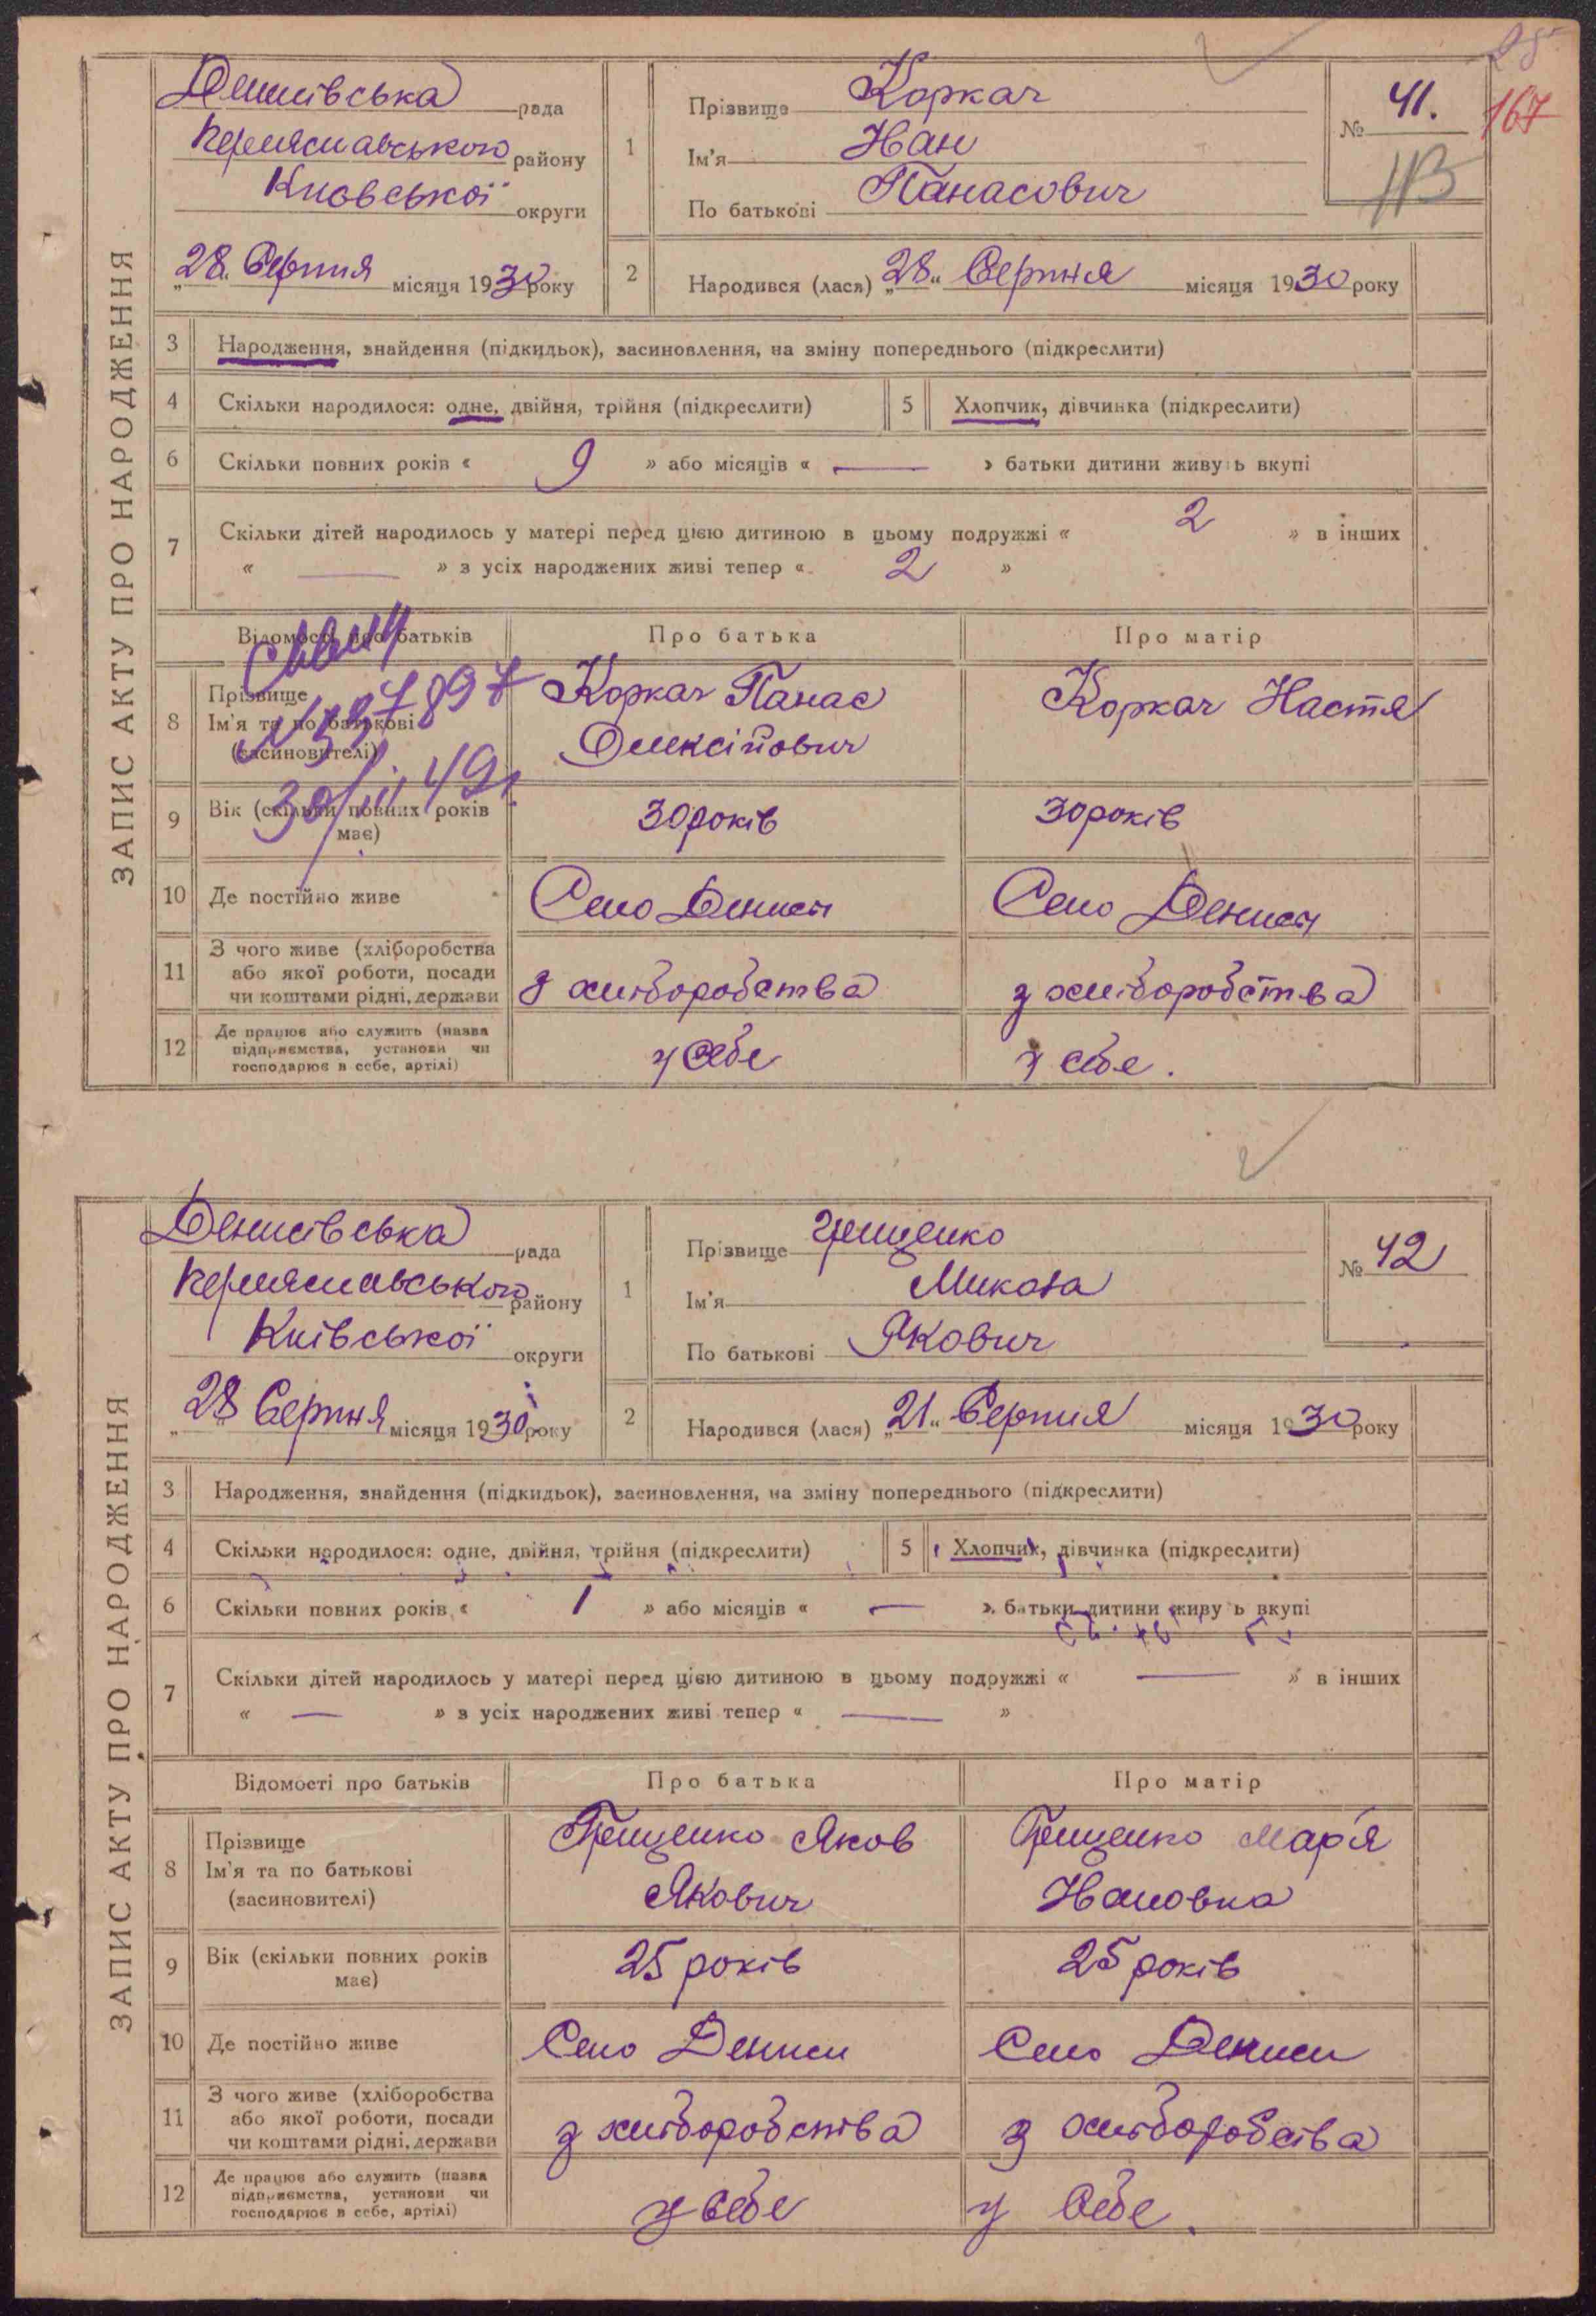 25
167
ЗАПИС АКТУ ПРО НАРОДЖЕННЯ
Денисівська рада
Переяславського району
Киівської округи
„28“ Серпня місяця 1930 року
1
Прізвище Коркач
Ім'я Иван
По батькові Панасович
№ 41.
2
Народився (лася) „28“ Серпня місяця 1930 року
3 Народження, знайдення (підкидьок), засиновлення, на зміну попереднього (підкреслити)
4 Скільки народилося: одне, двійня, трійня (підкреслити) 5 Хлопчик, дівчинка (підкреслити)
6 Скільки повних років « 9 » або місяців « — » батьки дитини живуть вкупі
7 Скільки дітей народилось у матері перед цією дитиною в цьому подружжі « 2 » в інших
« — » з усіх народжених живі тепер « 2 »
Відомості про батьків Про батька Про матір
8 Прізвище
Ім'я та по батькові
(засиновителі)
Коркач Панас
Олексійович
Коркач Настя
9 Вік (скільки повних років
має)
30 років 30 років
10 Де постійно живе Село Дениси Село Дениси
11 З чого живе (хліборобства
або якої роботи, посади
чи коштами рідні, держави
з хліборобства з хліборобства
12 Де працює або служить (назва
підприємства, установи чи
господарює в себе, артілі)
у себе у себе.
ЗАПИС АКТУ ПРО НАРОДЖЕННЯ
Денисівська рада
Переяславського району
Київської округи
„28 Серпня місяця 1930 року
1
Прізвище Грищенко
Ім'я Микола
По батькові Якович
№ 42
2
Народився (лася) „21“ Серпня місяця 1930 року
3 Народження, знайдення (підкидьок), засиновлення, на зміну попереднього (підкреслити)
4 Скільки народилося: одне, двійня, трійня (підкреслити) 5 Хлопчик, дівчинка (підкреслити)
6 Скільки повних років « 1 » або місяців « — » батьки дитини живуть вкупі
7 Скільки дітей народилось у матері перед цією дитиною в цьому подружжі « — » в інших
« — » з усіх народжених живі тепер « — »
Відомості про батьків Про батька Про матір
8 Прізвище
Ім'я та по батькові
(засиновителі)
Грищенко Яков
Якович
Грищенко Мар'я
Ивановна
9 Вік (скільки повних років
має)
25 років 25 років
10 Де постійно живе Село Дениси Село Дениси
11 З чого живе (хліборобства
або якої роботи, посади
чи коштами рідні, держави
з хліборобства з хліборобства
12 Де працює або служить (назва
підприємства, установи чи
господарює в себе, артілі)
у себе у себе.